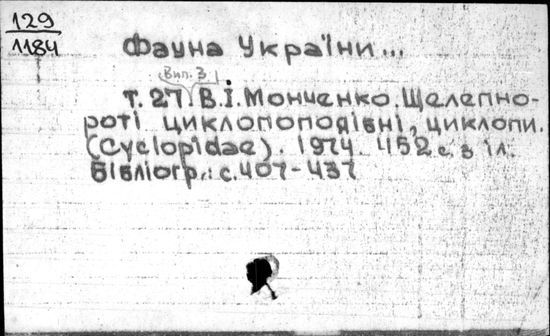 129
1184
Фауна України...
Вип. 3
т. 27. В.І. Мончено. Щелепно-
роті циклопоподібні, циклопи.
(Cyclopidae). 1974. 452 с. з іл.
Бібліогр.: с. 407-437